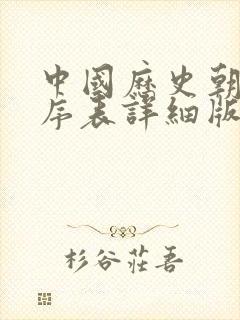 中國歷史朝
序表詳細版
杉谷莊吾